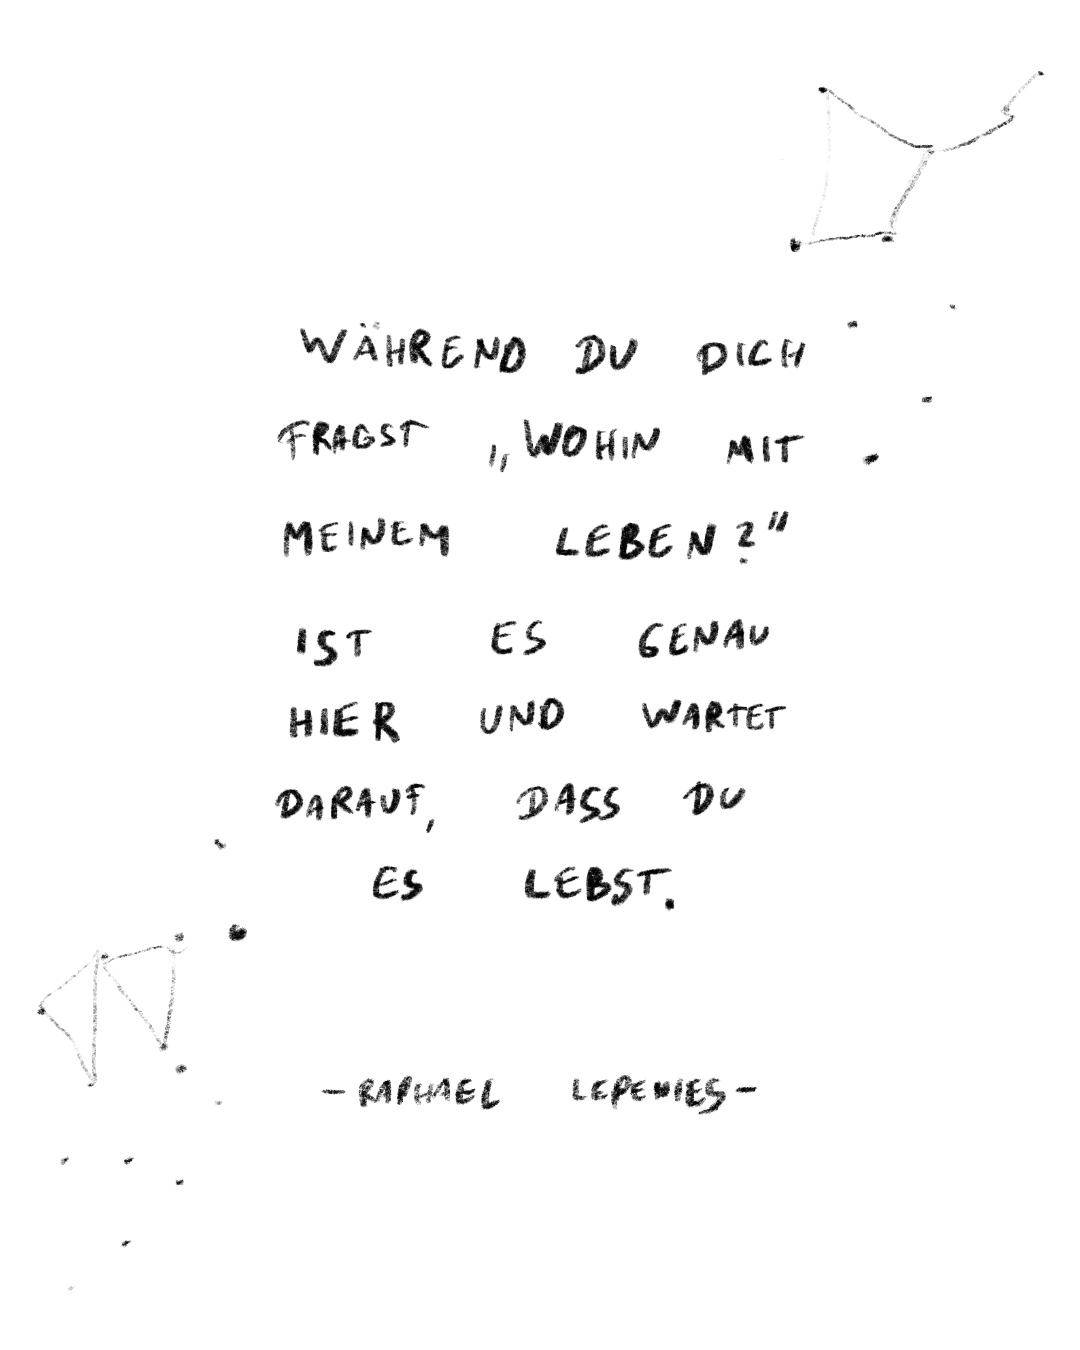 WÄHREND DU DICH
FRAGST „WOHIN MIT
MEINEM LEBEN?"
IST ES GENAU
HIER UND WARTET
DARAUF, DASS DU
ES LEBST.
-RAPHAEL LEPENIES-